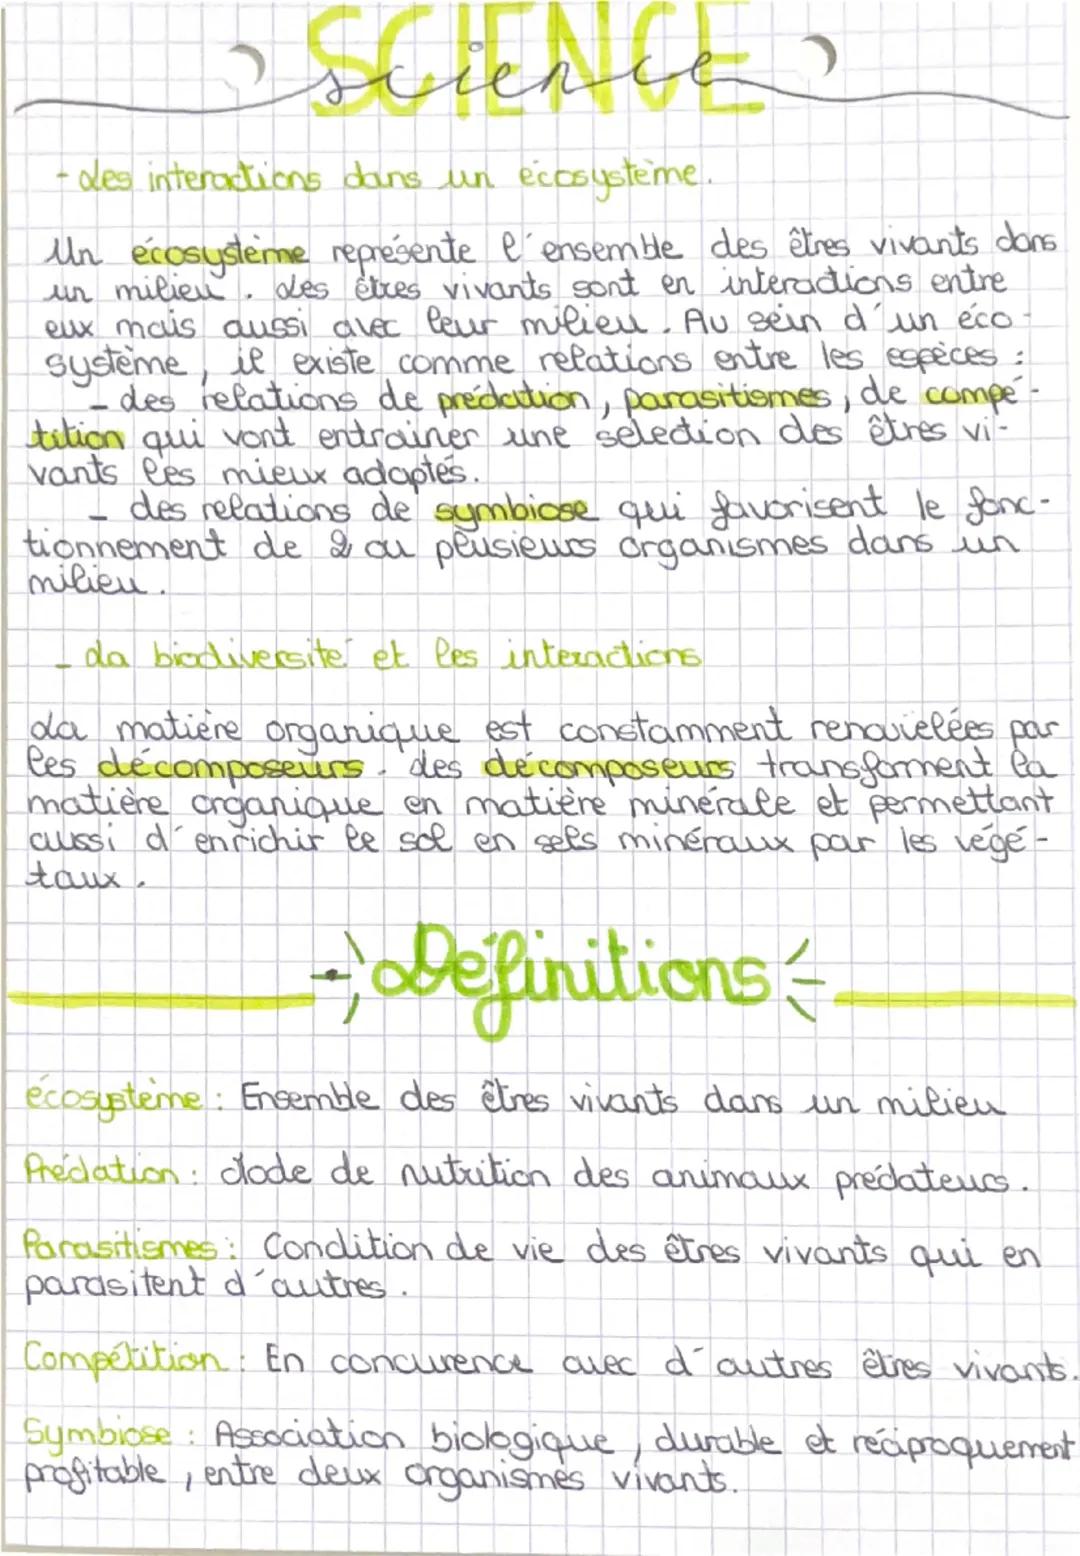 SCIENCE
science
- Les interactions dans un écosystème.
Un écosystème représente l'ensemble des êtres vivants dans
un milieu. Les êtres vivants sont en interactions entre
eux mais aussi avec leur milieu. Au sein d'un éco-
système, il existe comme relations entre les espèces :
- des relations de prédation, parasitismes, de compé-
tition qui vont entrainer une selection des êtres vi-
vants les mieux adaptés.
- des relations de symbiose qui favorisent le fonc-
tionnement de 2 ou plusieurs organismes dans un
milieu.
- La biodiversité et les interactions
La matière organique est constamment renouvelées par
les décomposeurs. Les décomposeurs transforment la
matière organique en matière minérale et permettant
aussi d'enrichir le sol en sels minéraux par les végé-
taux.
Définitions
écosystème : Ensemble des êtres vivants dans un milieu
Prédation : Mode de nutrition des animaux prédateurs.
Parasitismes : Condition de vie des êtres vivants qui en
parasitent d'autres.
Compétition : En concurence avec d'autres êtres vivants.
Symbiose : Association biologique, durable et réciproquement
profitable, entre deux organismes vivants.